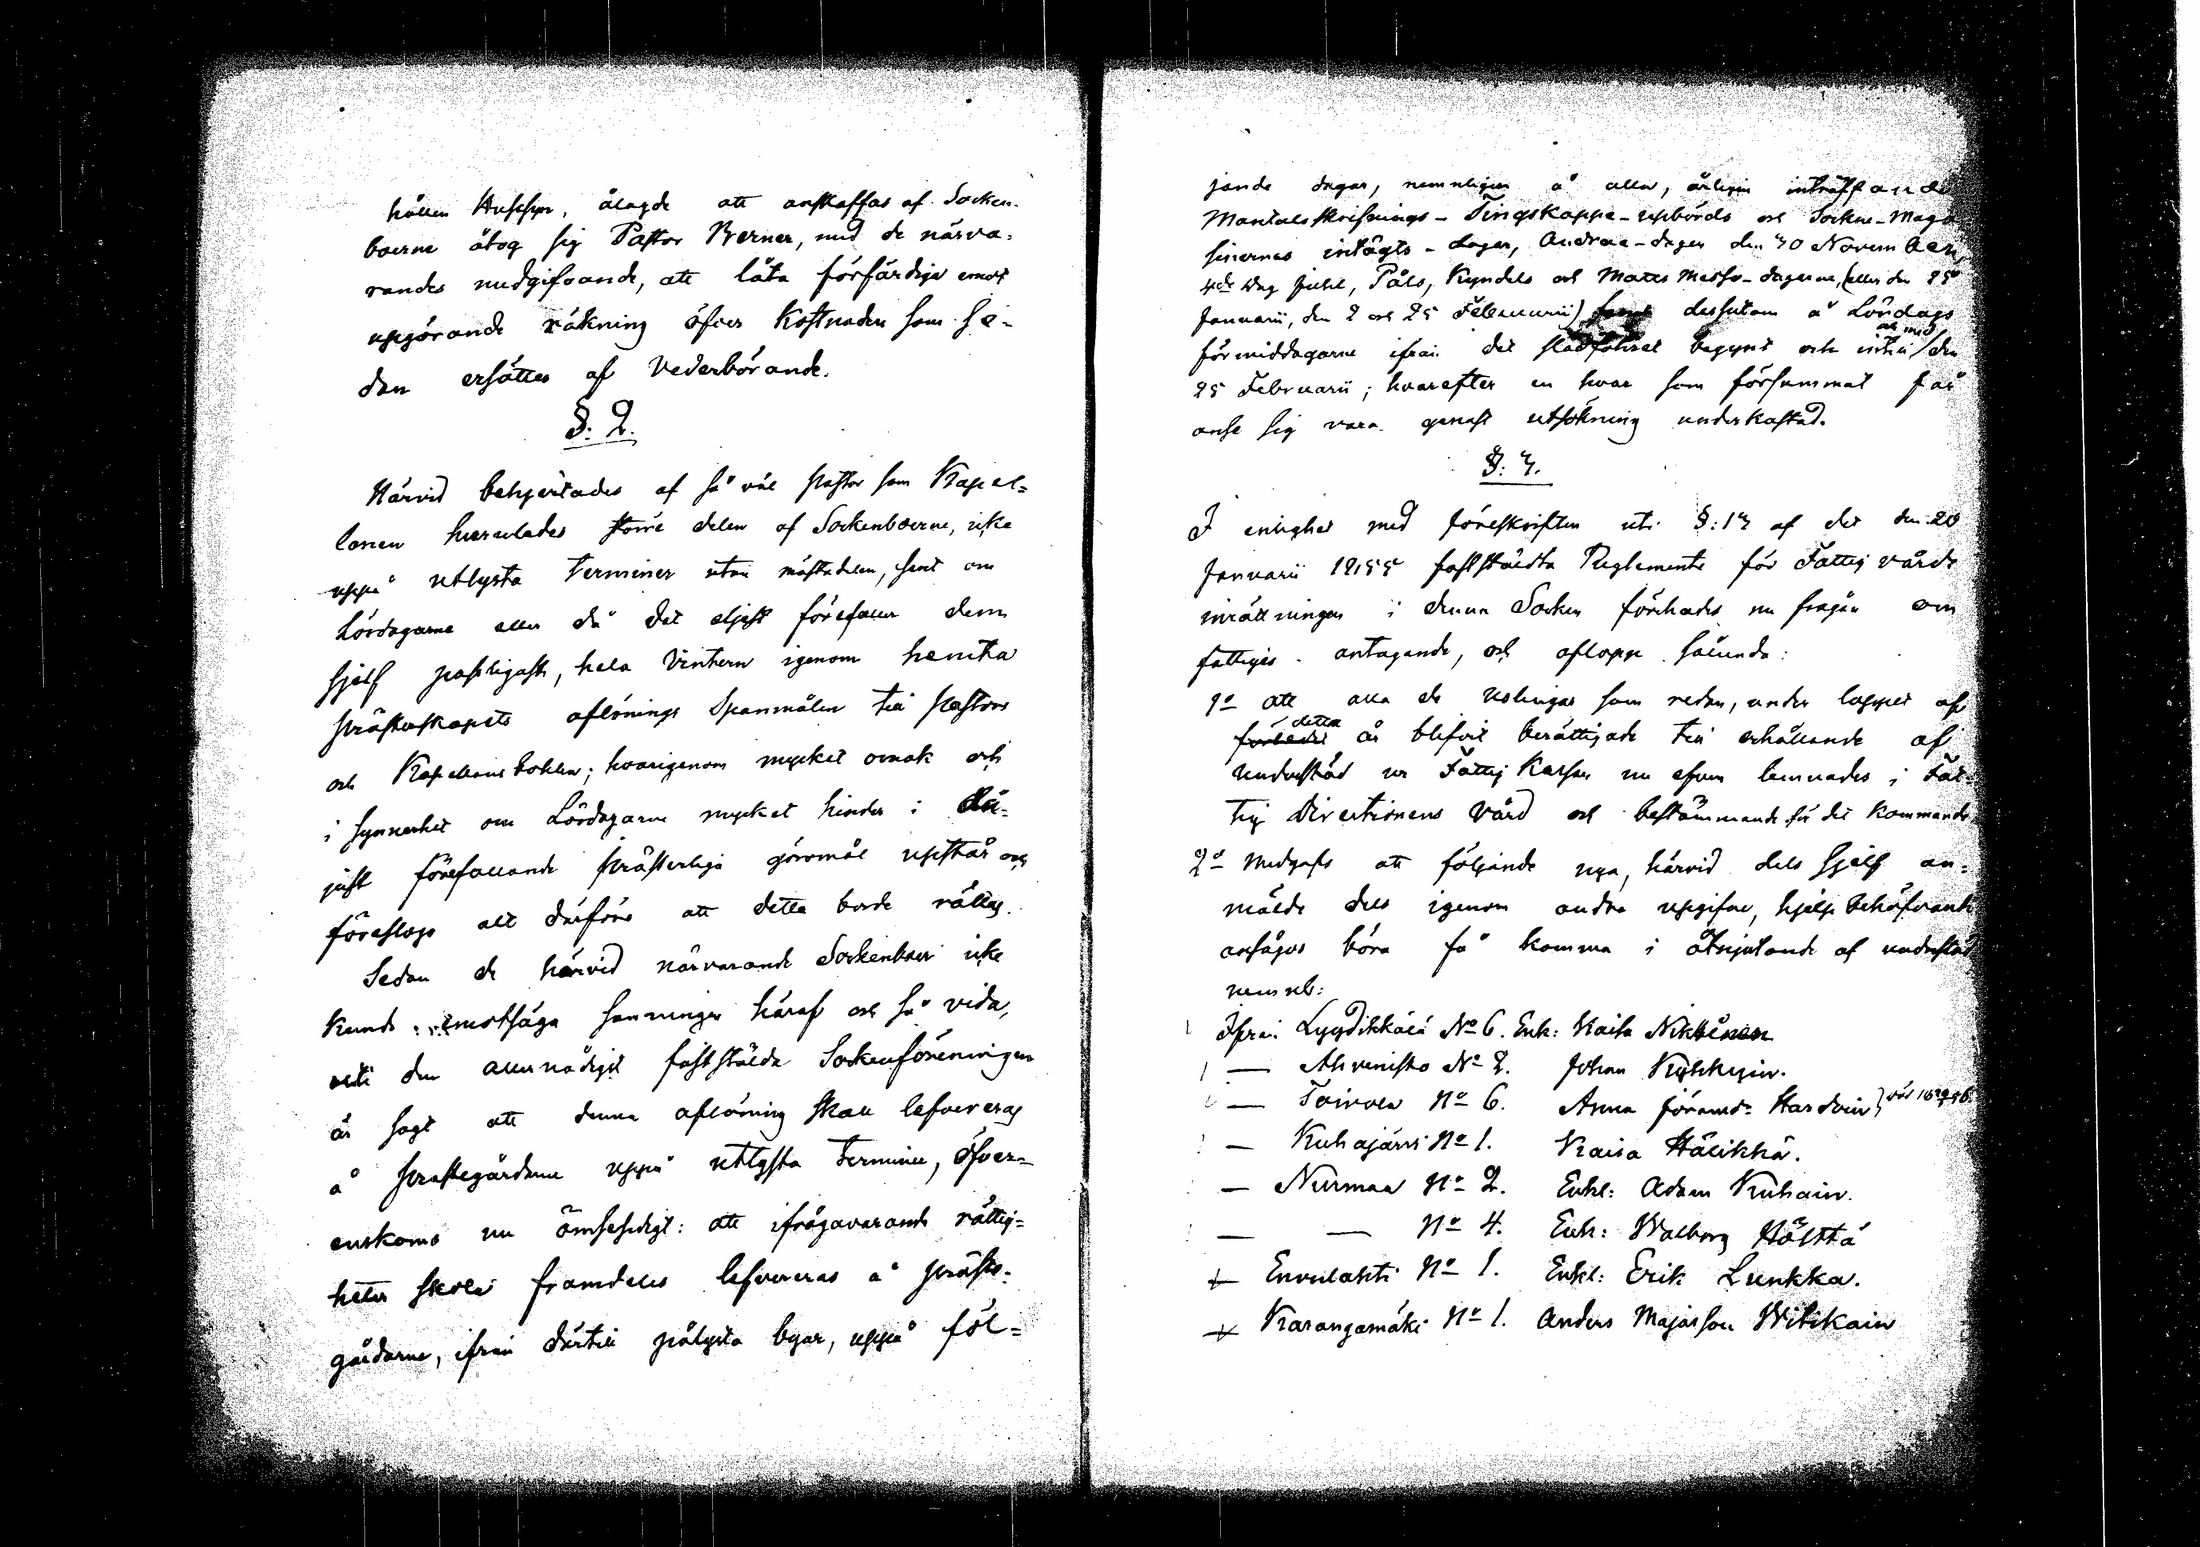 hållen Husesyn, ålagde att anskaffas af Socken-
boerne åtog sig Pastor Berner, med de närva-
randes medgifvande, att låta förfärdiga emot
uppgörande räkning öfver kostnaden som se-
dan ersättes af Vederbörande.
§. 2.
Härvid behjertades af så väl Pastor som Kapel-
lanen huruledes större delen af Sockenboerne, icke
uppå utlysta terminer utan mästadelen, samt om
Lördagarne eller då det eljest förefaller dem
sjelf passligast, hela Vintern igenom hemta
Prästerskapets aflönings Spanmålen till Pastors
och Kapellans bohlen; hvarigenom mycket omak och
i synnerhet om Lördagarne mycket hinder i
just förefallande prästerliga göromål uppstår och
föreslogs allt därföre att detta borde rättas.
Sedan de härvid närvarande Sockenboer icke
kunde emotsäga sanningen häraf och så vida,
uti den allernådigst fastställda Sockenföreningen
är sagt att denna aflöning skall lefvereras
å prästegårdarne uppå utlysta Terminer, öfver-
enskoms nu ömsesidigt: att ifrågavarande rättig-
heter skola framdeles lefvereras å prästs-
gårdarne, ifrån därtill pålysta byar, uppå föl-
jande dagar, nemnligen å alla, årligen inträffande
Mantalsskrifnings- Tingskappe-uppbörds och Sockne-Maga-
sinernas intägts-dagar, Andreæ-dagen den 30 November,
4de Dag Juhl, Påls, Kyndels och Matts Messo-dagarne, (eller den 25
Januarii, den 2 och 25 Februarii) samt dessutom å Lördags
förmiddagarne ifrån det slädföhret begynt och intill och med den
25 Februarii; hvarefter en hvar som försummat får
anse sig vara genast utsökning underkastad.
§. 3.
I enlighet med föreskriften uti §: 13 af det den 20
Januarii 1855 fastställda Reglemente för Fattigvårds
inrättningen i denna Socken förehades nu frågan om
fattiges antagande, och aflopp sålunda:
1o att alla de uslingar som redan, under loppet af
förledit detta år blifvit berättigade till erhållande af
understöd ur Fattig Kassan nu äfven lemnades i Fat-
tig Directionens vård och bestämmande för det kommande
2o Medgafs att följande nya, härvid dels sjelf an-
mälde dels igenom andra uppgifne, hjelp behöfvande
ansågos böra få komma i åtnjutande af understöd
nemnl:
Ifrån Lyydikkälä No 6. Enk: Kaisa Nikkinen
— Ahvenisto No 2. Johan Kyhkyin.
— Toivola No 6. Anna Jöransdr Hardvin
— Kuhajärvi No 1. Kaisa Hälikkä.
— Nurmaa No 2. Enkl: Adam Kuhain.
— — No 4. Enk: Walborg Hölttä
— Envulahti No 1. Enkl: Erik Lunkka.
— Karangamäki No 1. Anders Majasson Witikain